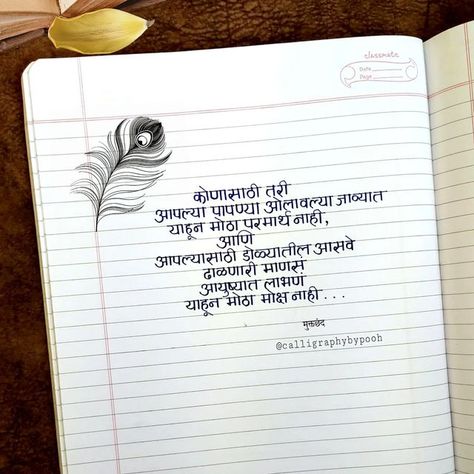 classmate
Date
Page
कोणासाठी तरी
आपल्या पापण्या ओलावल्या जाव्यात
याहून मोठा परमार्थ नाही,
आणि
आपल्यासाठी डोळ्यातील आसवे
ढाळणारी माणसं
आयुष्यात लाभणं
याहून मोठा मोक्ष नाही . . .
मुक्तछंद
@calligraphybypooh